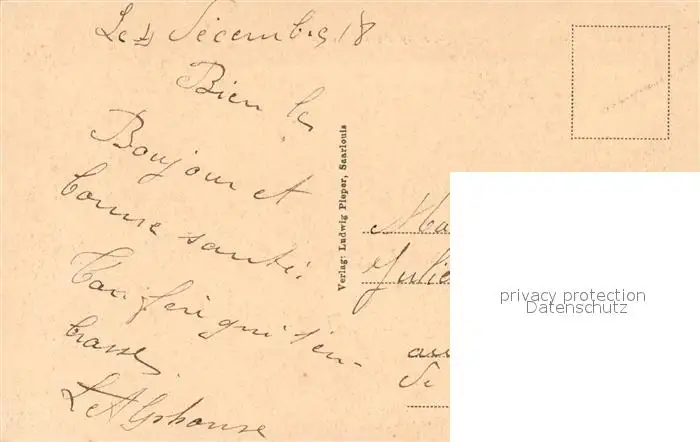 Le 4 Décembre 18
Bien le
Bonjour et
bonne santé.
Ton fère qui t'en-
brasse
L. Alphonse
Verlag: Ludwig Pieper, Saarlouis
Julie
privacy protection
Datenschutz